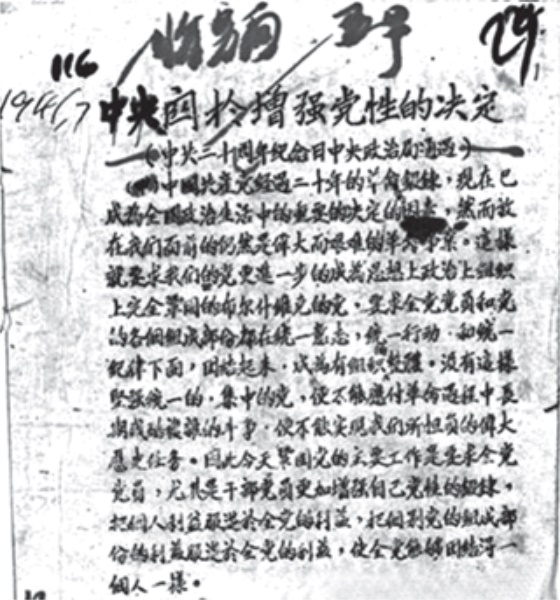 116
29
1941.7
中央関於增强党性的决定
(中共二十周年纪念日中央政治局通過)
中國共産党经過二十年的革命鍛鍊，現在已
成為全國政治生活中的重要的决定的因素，然而放
在我们面前的仍然是偉大而艰难的革命事業。這樣
就要求我们的党更進一步的成為思想上政治上组织
上完全鞏固的布尔什維克的党。要求全党党員和党
的各個組成部份都在统一意志，统一行动和统一
纪律下面，团结起来，成為有组织整體。没有這樣
坚强统一的，集中的党，便不能應付革命過程中長
期残酷複雜的斗争，便不能实现我们所担負的偉大
歷史任务。因此今天鞏固党的主要工作是要求全党
党員，尤其是干部党員更加增强自己党性的鍛鍊，
把個人利益服從於全党的利益，把個别党的组成部
份的利益服從於全党的利益，使全党能够团结得一
個人一樣。